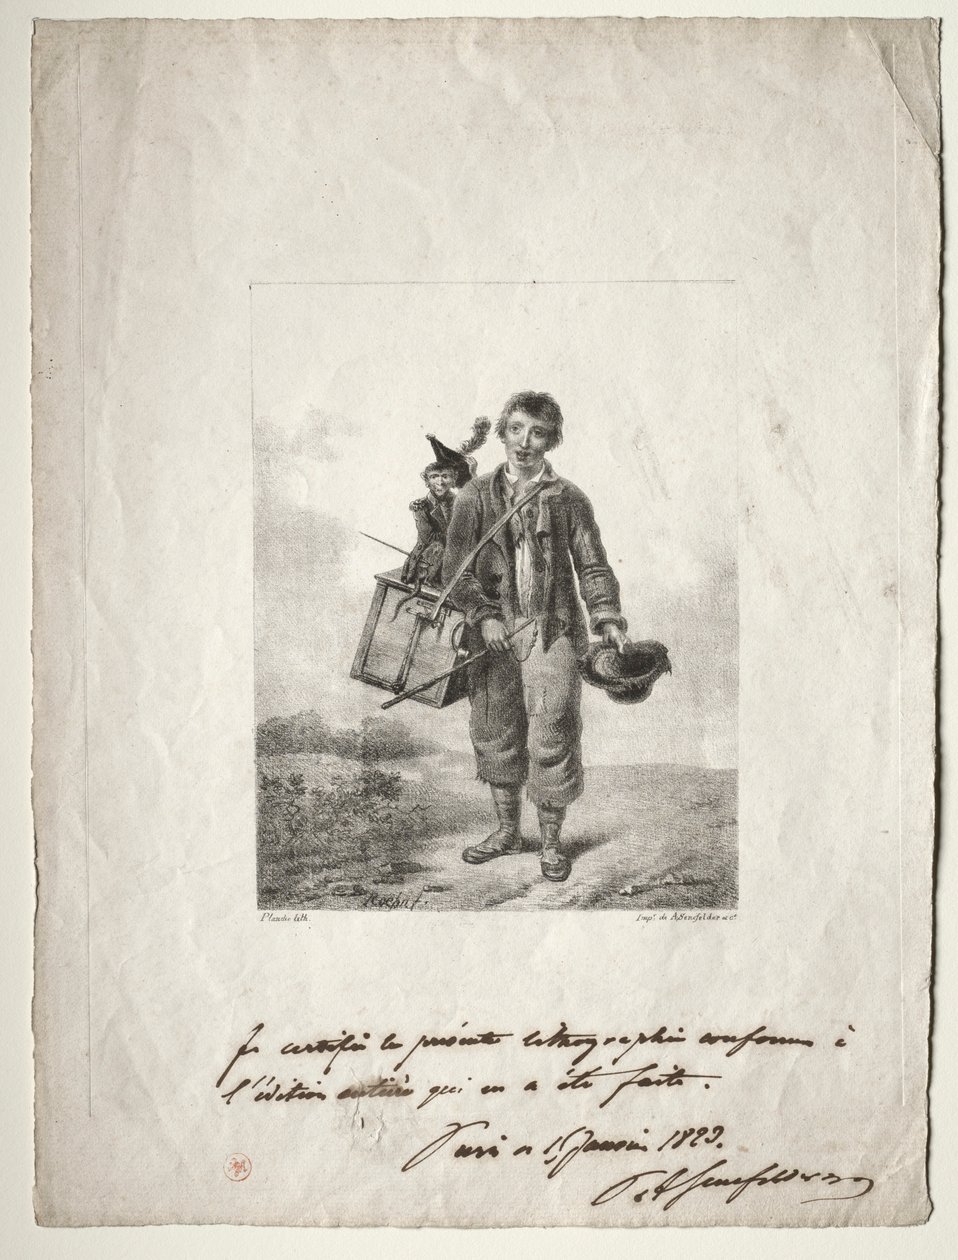 Roehn f.
Planche lith.
Impie. de A. Senefelder & Cie.
Je certifie la présente lithographie conforme à
l'édition entière qui en a été faite.
Paris 15 Janvier 1823.
Senefelder